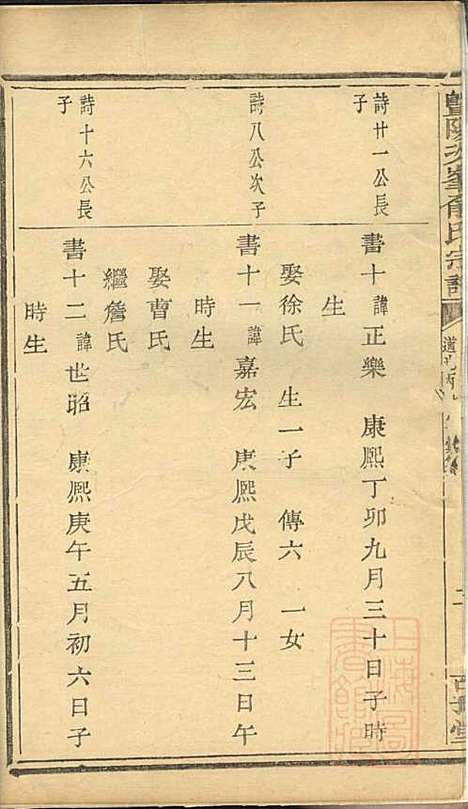 暨陽次峯俞氏宗譜
詩廿一公長
子
書十諱正樂 康熙丁卯九月三十日子時
生
娶徐氏 生一子 傳六 一女
詩八公次子
書十一諱嘉宏 康熙戊辰八月十三日午
時生
娶曹氏
繼詹氏
詩十六公長
子
書十二諱世昭 康熙庚午五月初六日子
時生